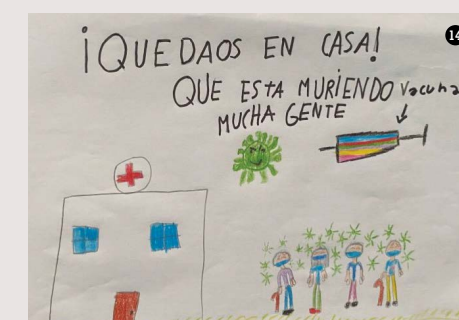 14
¡QUEDAOS EN CASA!
QUE ESTA MURIENDO
MUCHA GENTE
Vacuna